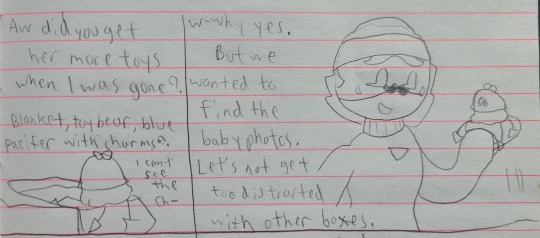 Aw did you get
her more toys
when I was gone?
Blanket, toy bear, blue
pacifer with charms?
i cant
see
the
ch-
w-why yes.
But we
wanted to
find the
baby photos.
Let's not get
too distracted
with other boxes.